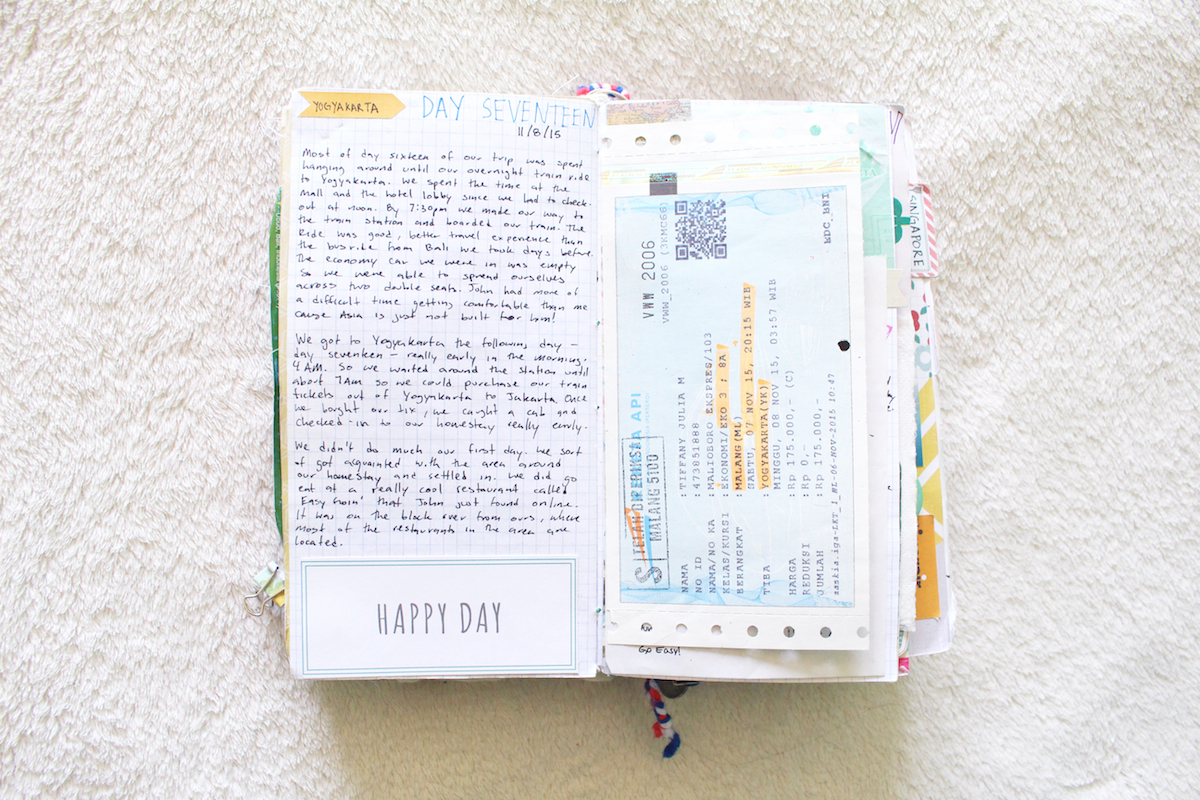 YOGYAKARTA
DAY SEVENTEEN
11/8/15
Most of day sixteen of our trip was spent
hanging around until our overnight train ride
to Yogyakarta. We spent the time at the
mall and the hotel lobby since we had to check-
out at noon. By 7:30pm we made our way to
the train station and boarded our train. The
ride was good, better travel experience than
the bus ride from Bali we took days before.
The economy car we were in was empty
so we were able to spread ourselves
across two double seats. John had more of
a difficult time getting comfortable than me
cause Asia is just not built for him!
We got to Yogyakarta the following day –
day seventeen – really early in the morning.
4AM. So we waited around the station until
about 7AM so we could purchase our train
tickets out of Yogyakarta to Jakarta. Once
we bought our tix, we caught a cab and
checked-in to our homestay really early.
We didn't do much our first day. We sort
of got acquainted with the area around
our homestay and settled in. We did go
eat at a really cool restaurant called
that John just found online.
It was on the block over from ours, where
most of the restaurants in the area are
located.
HAPPY DAY
VWW 2006
VWW_2006 (3KMC66)
RDC. BNI
API
S TELAH DIPERIKSA
MALANG 5100
NAMA : TIFFANY JULIA M
NO ID : 473851888
NAMA/NO KA : MALIOBORO EKSPRES/103
KELAS/KURSI : EKONOMI/EKO 3 : 8A
BERANGKAT : MALANG(ML)
SABTU, 07 NOV 15, 20:15 WIB
TIBA : YOGYAKARTA(YK)
MINGGU, 08 NOV 15, 03:57 WIB
HARGA : Rp 175.000,- (C)
REDUKSI : Rp 0,-
JUMLAH : Rp 175.000,-
Go Easy!
SINGAPORE